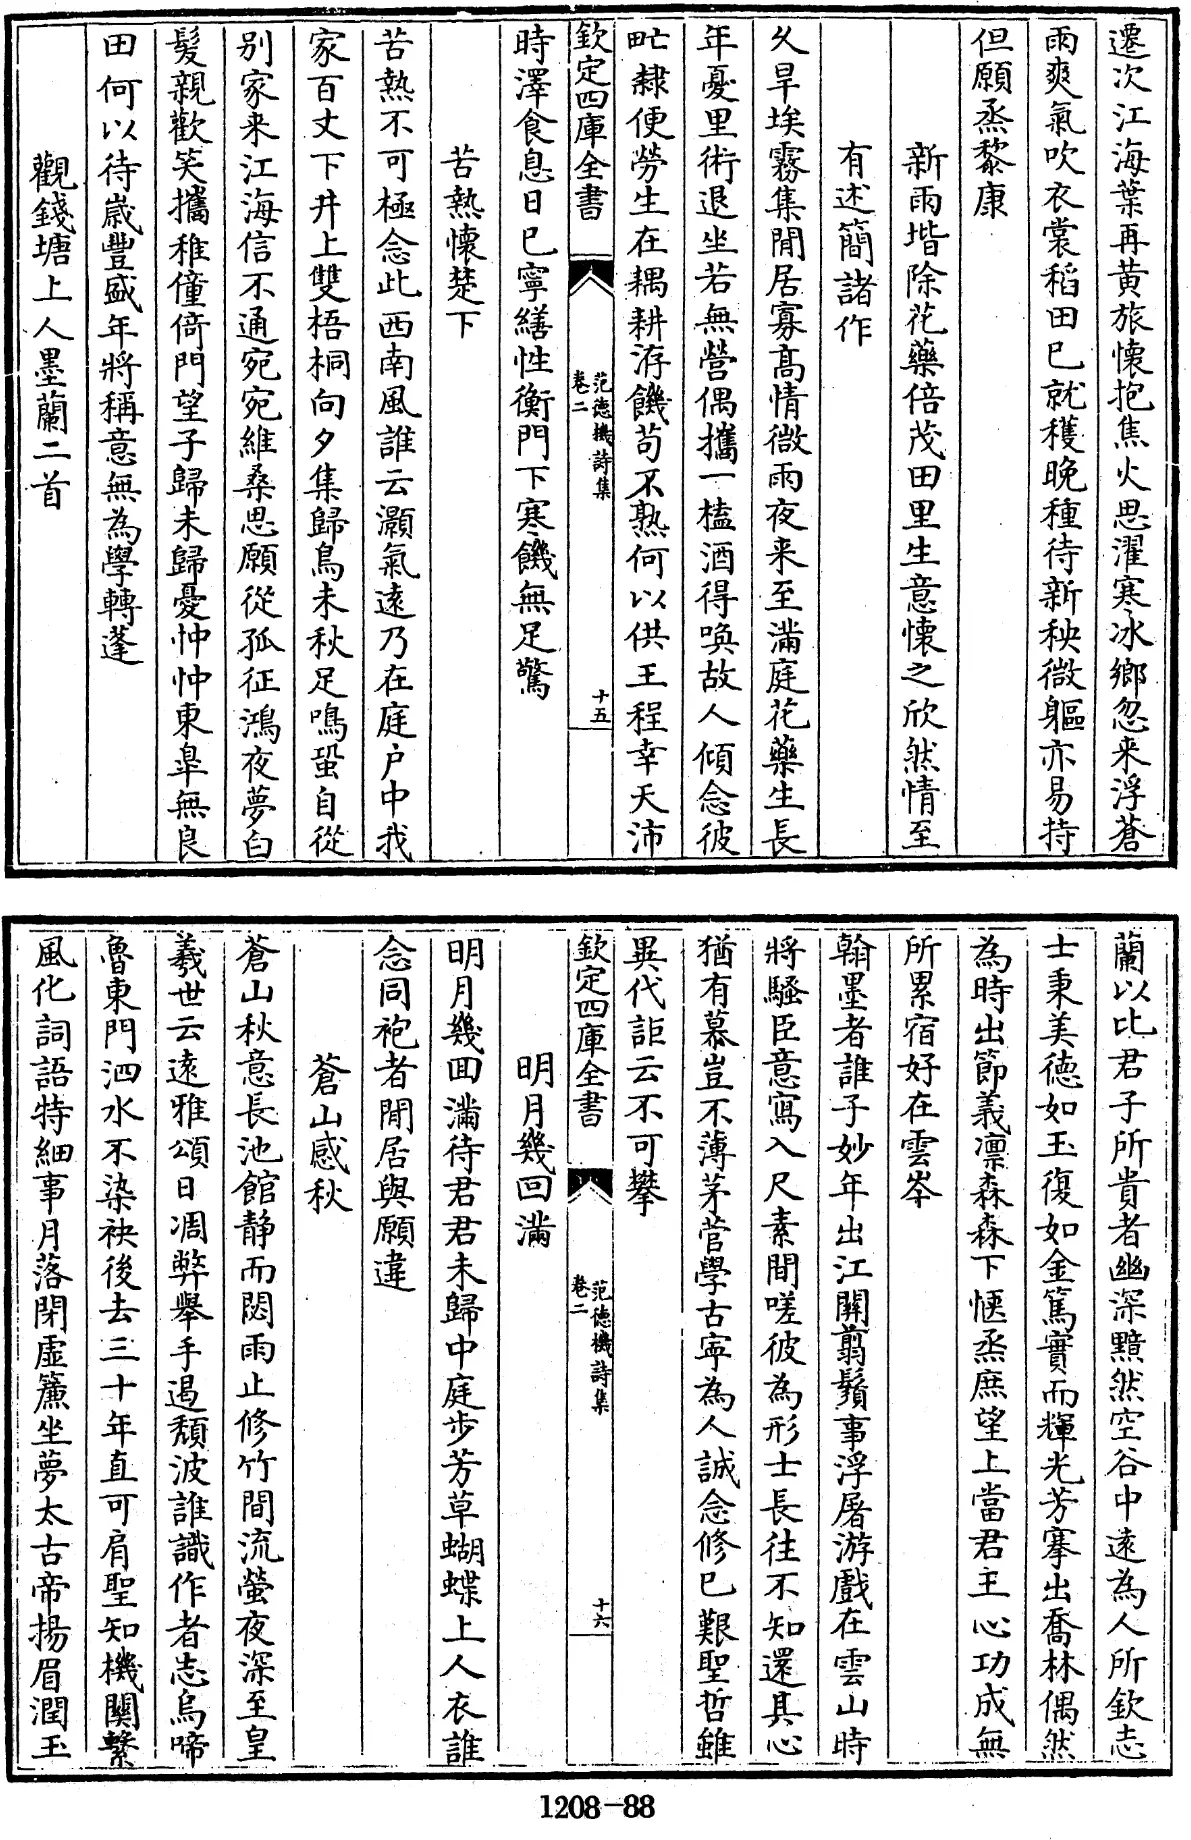 遷次江海葉再黄旅懷抱焦火思濯寒冰鄉忽来浮蒼
雨爽氣吹衣裳稻田已就穫晚種待新秧微軀亦易持
但願烝黎康
新雨堦除花藥倍茂田里生意懷之欣然情至
有述簡諸作
久旱埃霧集閒居寡髙情微雨夜来至滿庭花藥生長
年憂里術退坐若無營偶攜一榼酒得喚故人傾念彼
甿隸便勞生在耦耕洊饑苟不熟何以供王程幸天沛
欽定四庫全書
范德機詩集
卷二
十五
時澤食息日已寧繕性衡門下寒饑無足驚
苦熱懷楚下
苦熱不可極念此西南風誰云灝氣遠乃在庭户中我
家百丈下井上雙梧桐向夕集歸鳥未秋足鳴蛩自從
别家来江海信不通宛宛維桑思願從孤征鴻夜夢白
髪親歡笑攜稚僮倚門望子歸未歸憂忡忡東臯無良
田何以待嵗豐盛年將稱意無為學轉蓬
觀錢塘上人墨蘭二首
蘭以比君子所貴者幽深黯然空谷中遠為人所欽志
士秉美徳如玉復如金篤實而輝光芳搴出喬林偶然
為時出節義凛森森下愜烝庶望上當君主心功成無
所累宿好在雲岑
翰墨者誰子妙年出江關翦鬚事浮屠游戲在雲山時
將騷臣意寫入尺素間嗟彼為形士長往不知還其心
猶有慕豈不薄茅菅學古寜為人誠念修已艱聖哲雖
異代詎云不可攀
欽定四庫全書
范徳機詩集
卷二
十六
明月幾回滿
明月幾回滿待君君未歸中庭步芳草蝴蝶上人衣誰
念同袍者閒居與願違
蒼山感秋
蒼山秋意長池館靜而閟雨止修竹間流螢夜深至皇
羲世云遠雅頌日凋弊舉手遏頽波誰識作者志烏啼
魯東門泗水不染袂後去三十年直可肩聖知機關繫
風化詞語特細事月落閉虛簾坐夢太古帝揚眉潤玉
1208-88